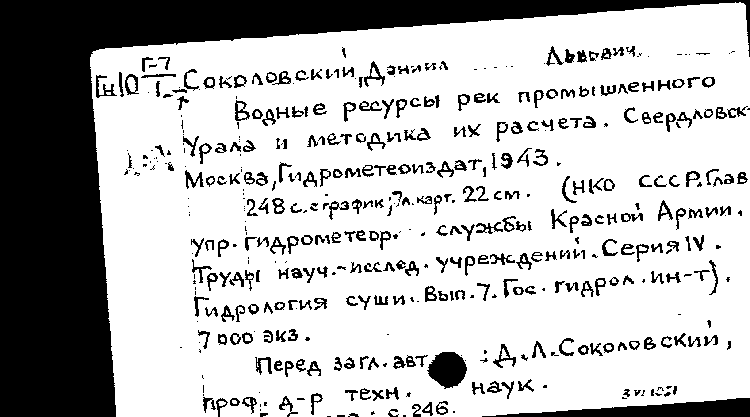 Г-7
Гн10 Соколовский, Даниил Львович.
Водные ресурсы рек промышленного
Урала и методика их расчета. Свердловск-
Москва, Гидрометеоиздат, 1943.
248 с. с график; 7л. карт. 22 см. (НКО СССР. Глав
упр. гидрометеор. службы Красной Армии.
Труды науч.-исслед. учреждений. Серия IV.
Гидрология суши. Вып. 7. Гос. гидрол. ин-т).
7000 экз.
Перед загл. авт : Д.Л. Соколовский,
проф. д-р техн. наук.
с. 246.